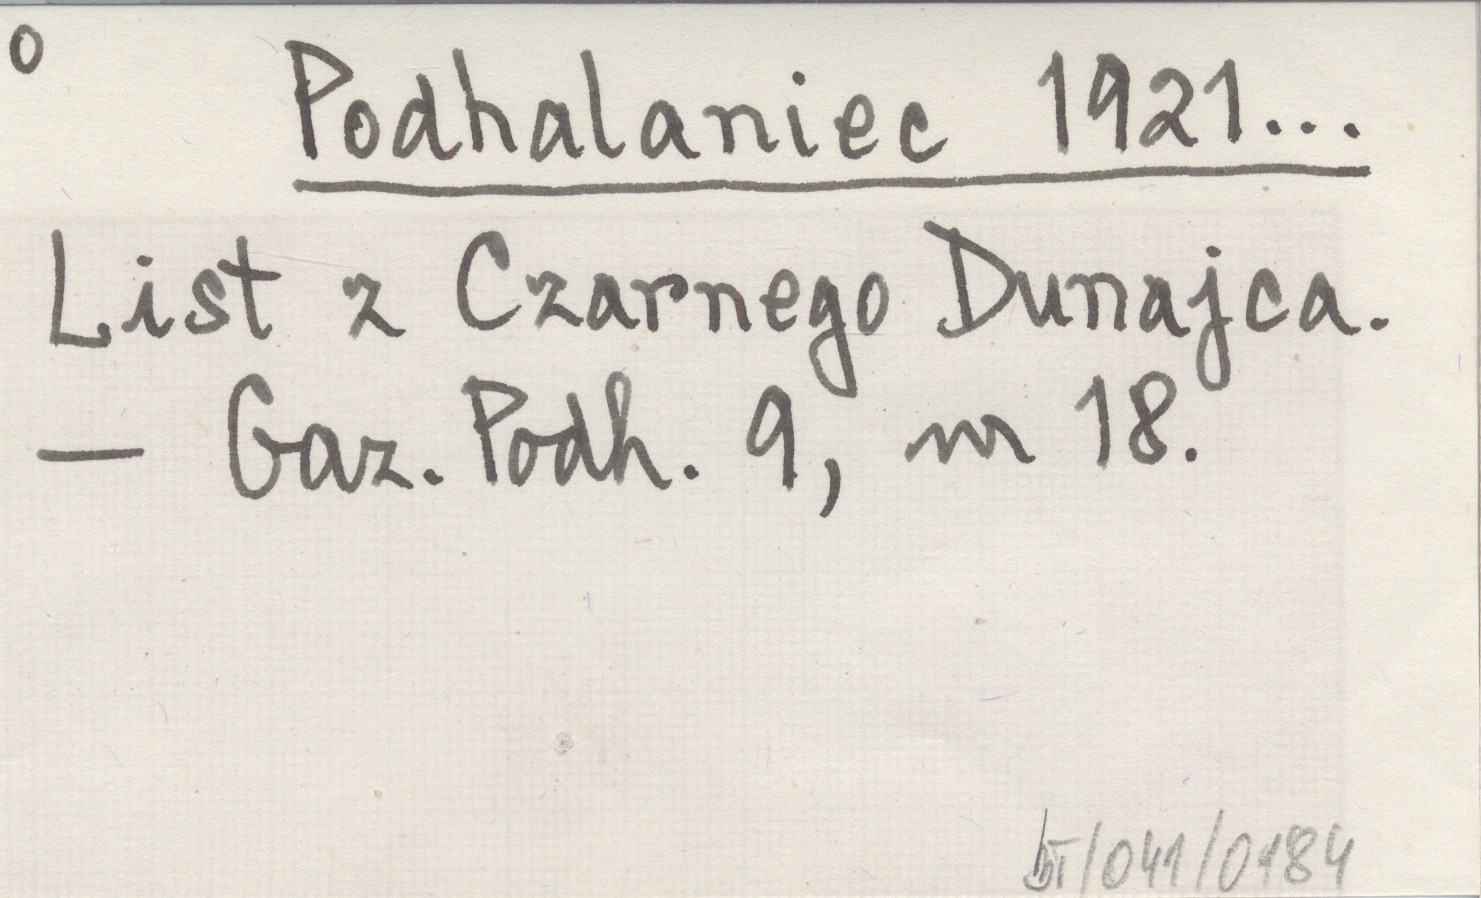 o
Podhalaniec 1921...
List z Czarnego Dunajca.
— Gaz. Podh. 9, nr 18.
/041/0184